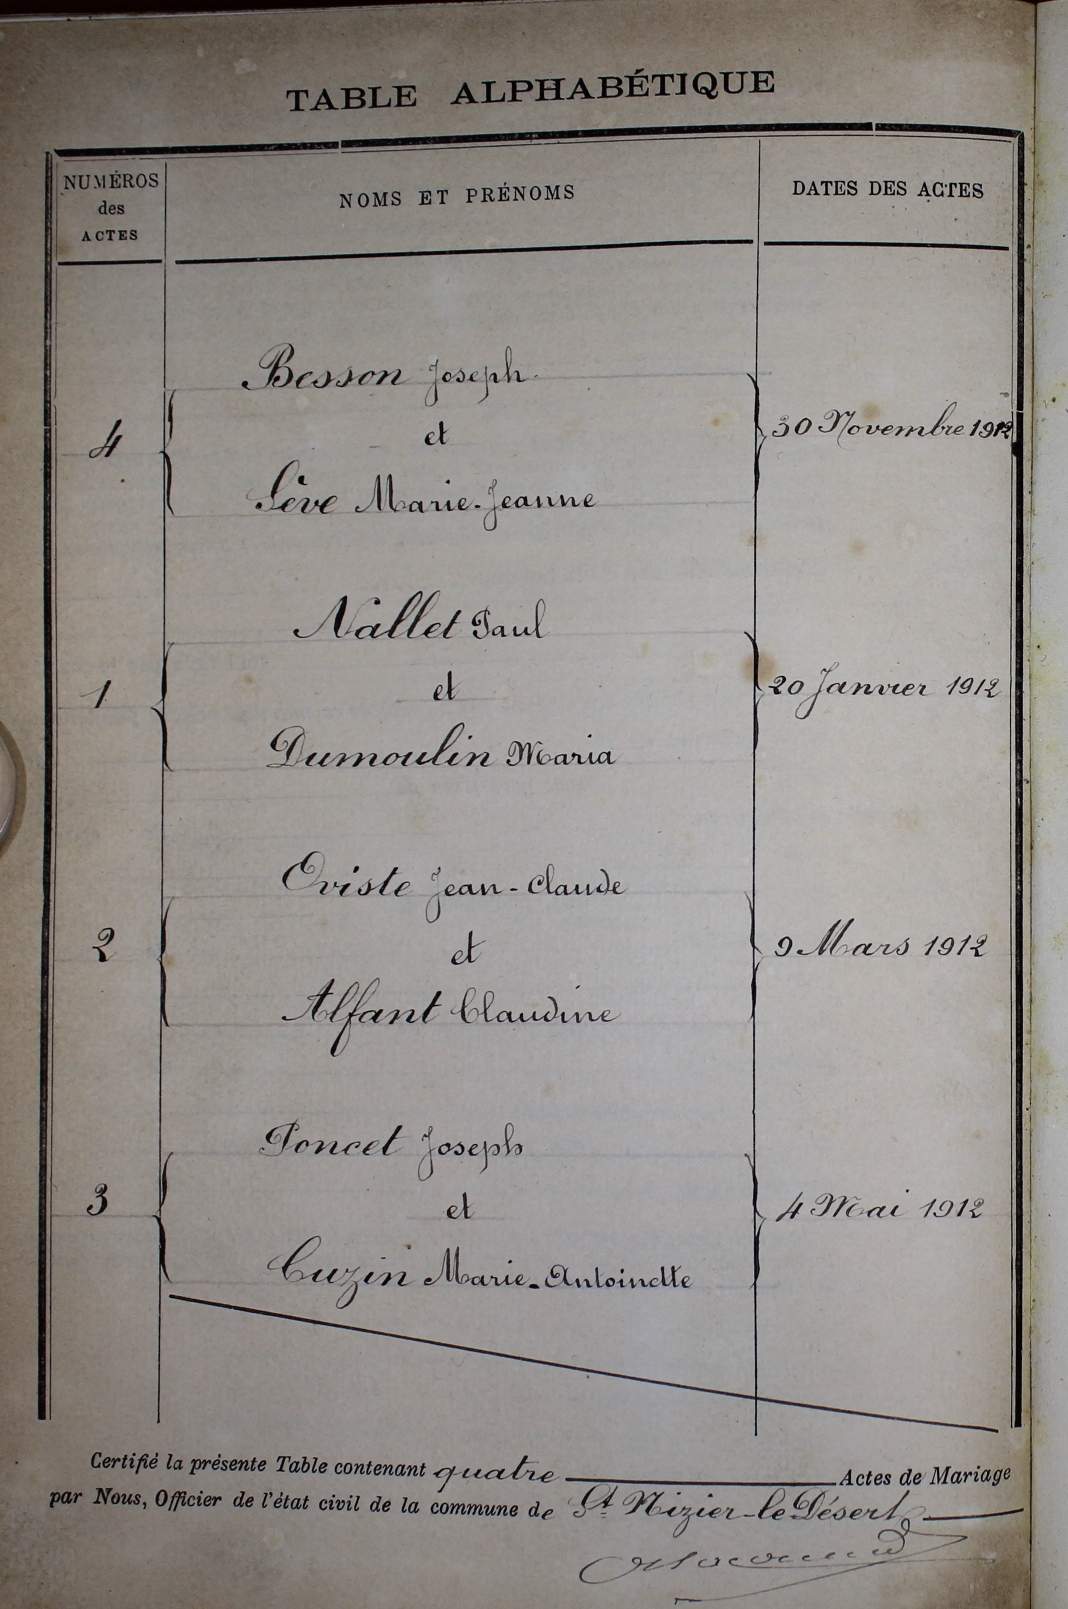 TABLE ALPHABÉTIQUE
NUMÉROS
des
ACTES
NOMS ET PRÉNOMS
DATES DES ACTES
Besson Joseph
4
et
30 Novembre 1912
Sève Marie-Jeanne
Nallet Paul
1
et
20 Janvier 1912
Dumoulin Maria
Oviste Jean-Claude
2
et
9 Mars 1912
Alfant Claudine
Poncet Joseph
3
et
4 Mai 1912
Cuzin Marie-Antoinette
Certifié la présente Table contenant quatre Actes de Mariage
par Nous, Officier de l'état civil de la commune de St Nizier-le Désert